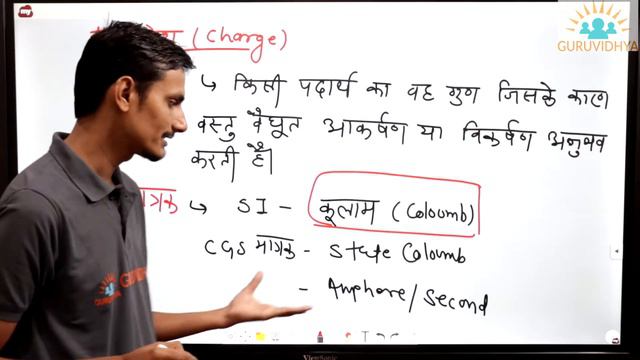 (Charge)
GURUVIDHYA
↳ किसी पदार्थ का वह गुण जिसके कारण
वस्तु वैद्युत आकर्षण या विकर्षण अनुभव
करती है।
मात्रक ↳ SI - कूलाम (Coloumb)
CGS मात्रक - State Coloumb
- Amphare/second
GURUVIDHYA
ViewSonic